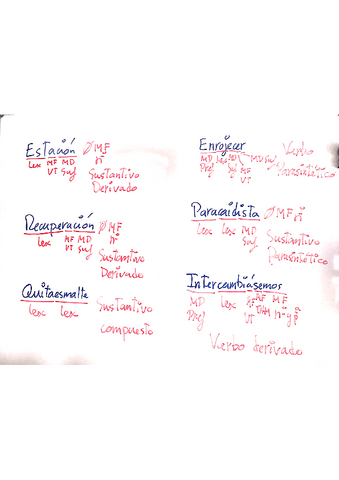 Estación Ø MF
Lex MF MD nº
VT Suf Sustantivo
Derivado
Recuperación Ø MF
Lex MF MD nº
VT Suf Sustantivo
Derivado
Quitaesmalte Sustantivo
Lex Lex compuesto
Enrojecer Verbo
MD Lex MD MD Suf Parasintético
Pref Suf MF
VT
Paracaidista Ø MF nº
Lex Lex MD Sustantivo
Suf Parasintético
Intercambiásemos
MD Lex MF MF MF
Pref VT TAM nº y p
Verbo derivado